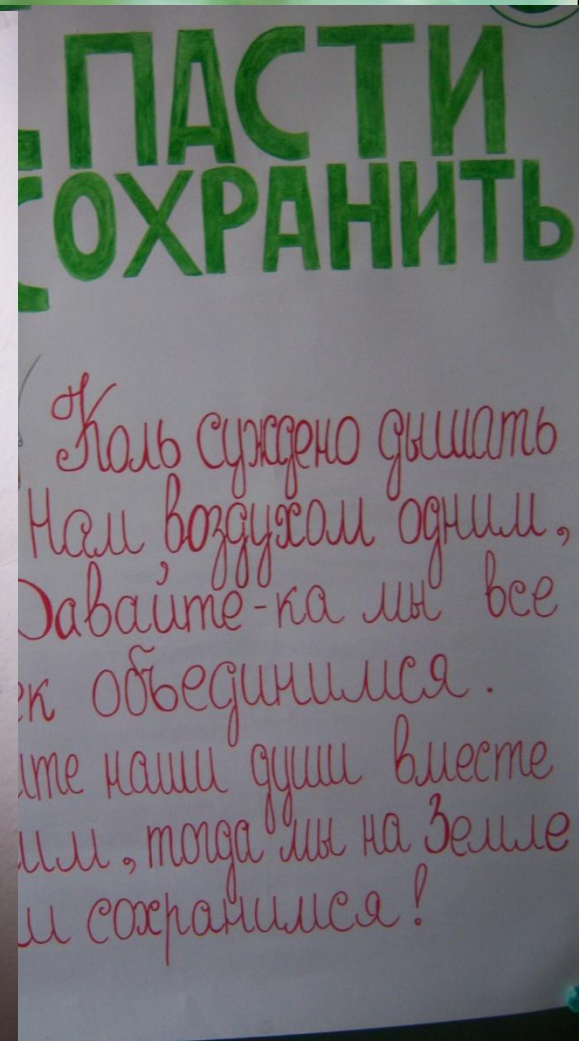 ПАСТИ
ОХРАНИТЬ
Коль суждено дышать
Нам воздухом одним,
Давайте-ка мы все
ек объединимся.
ите наши души вместе
им, тогда мы на Земле
и сохранимся!